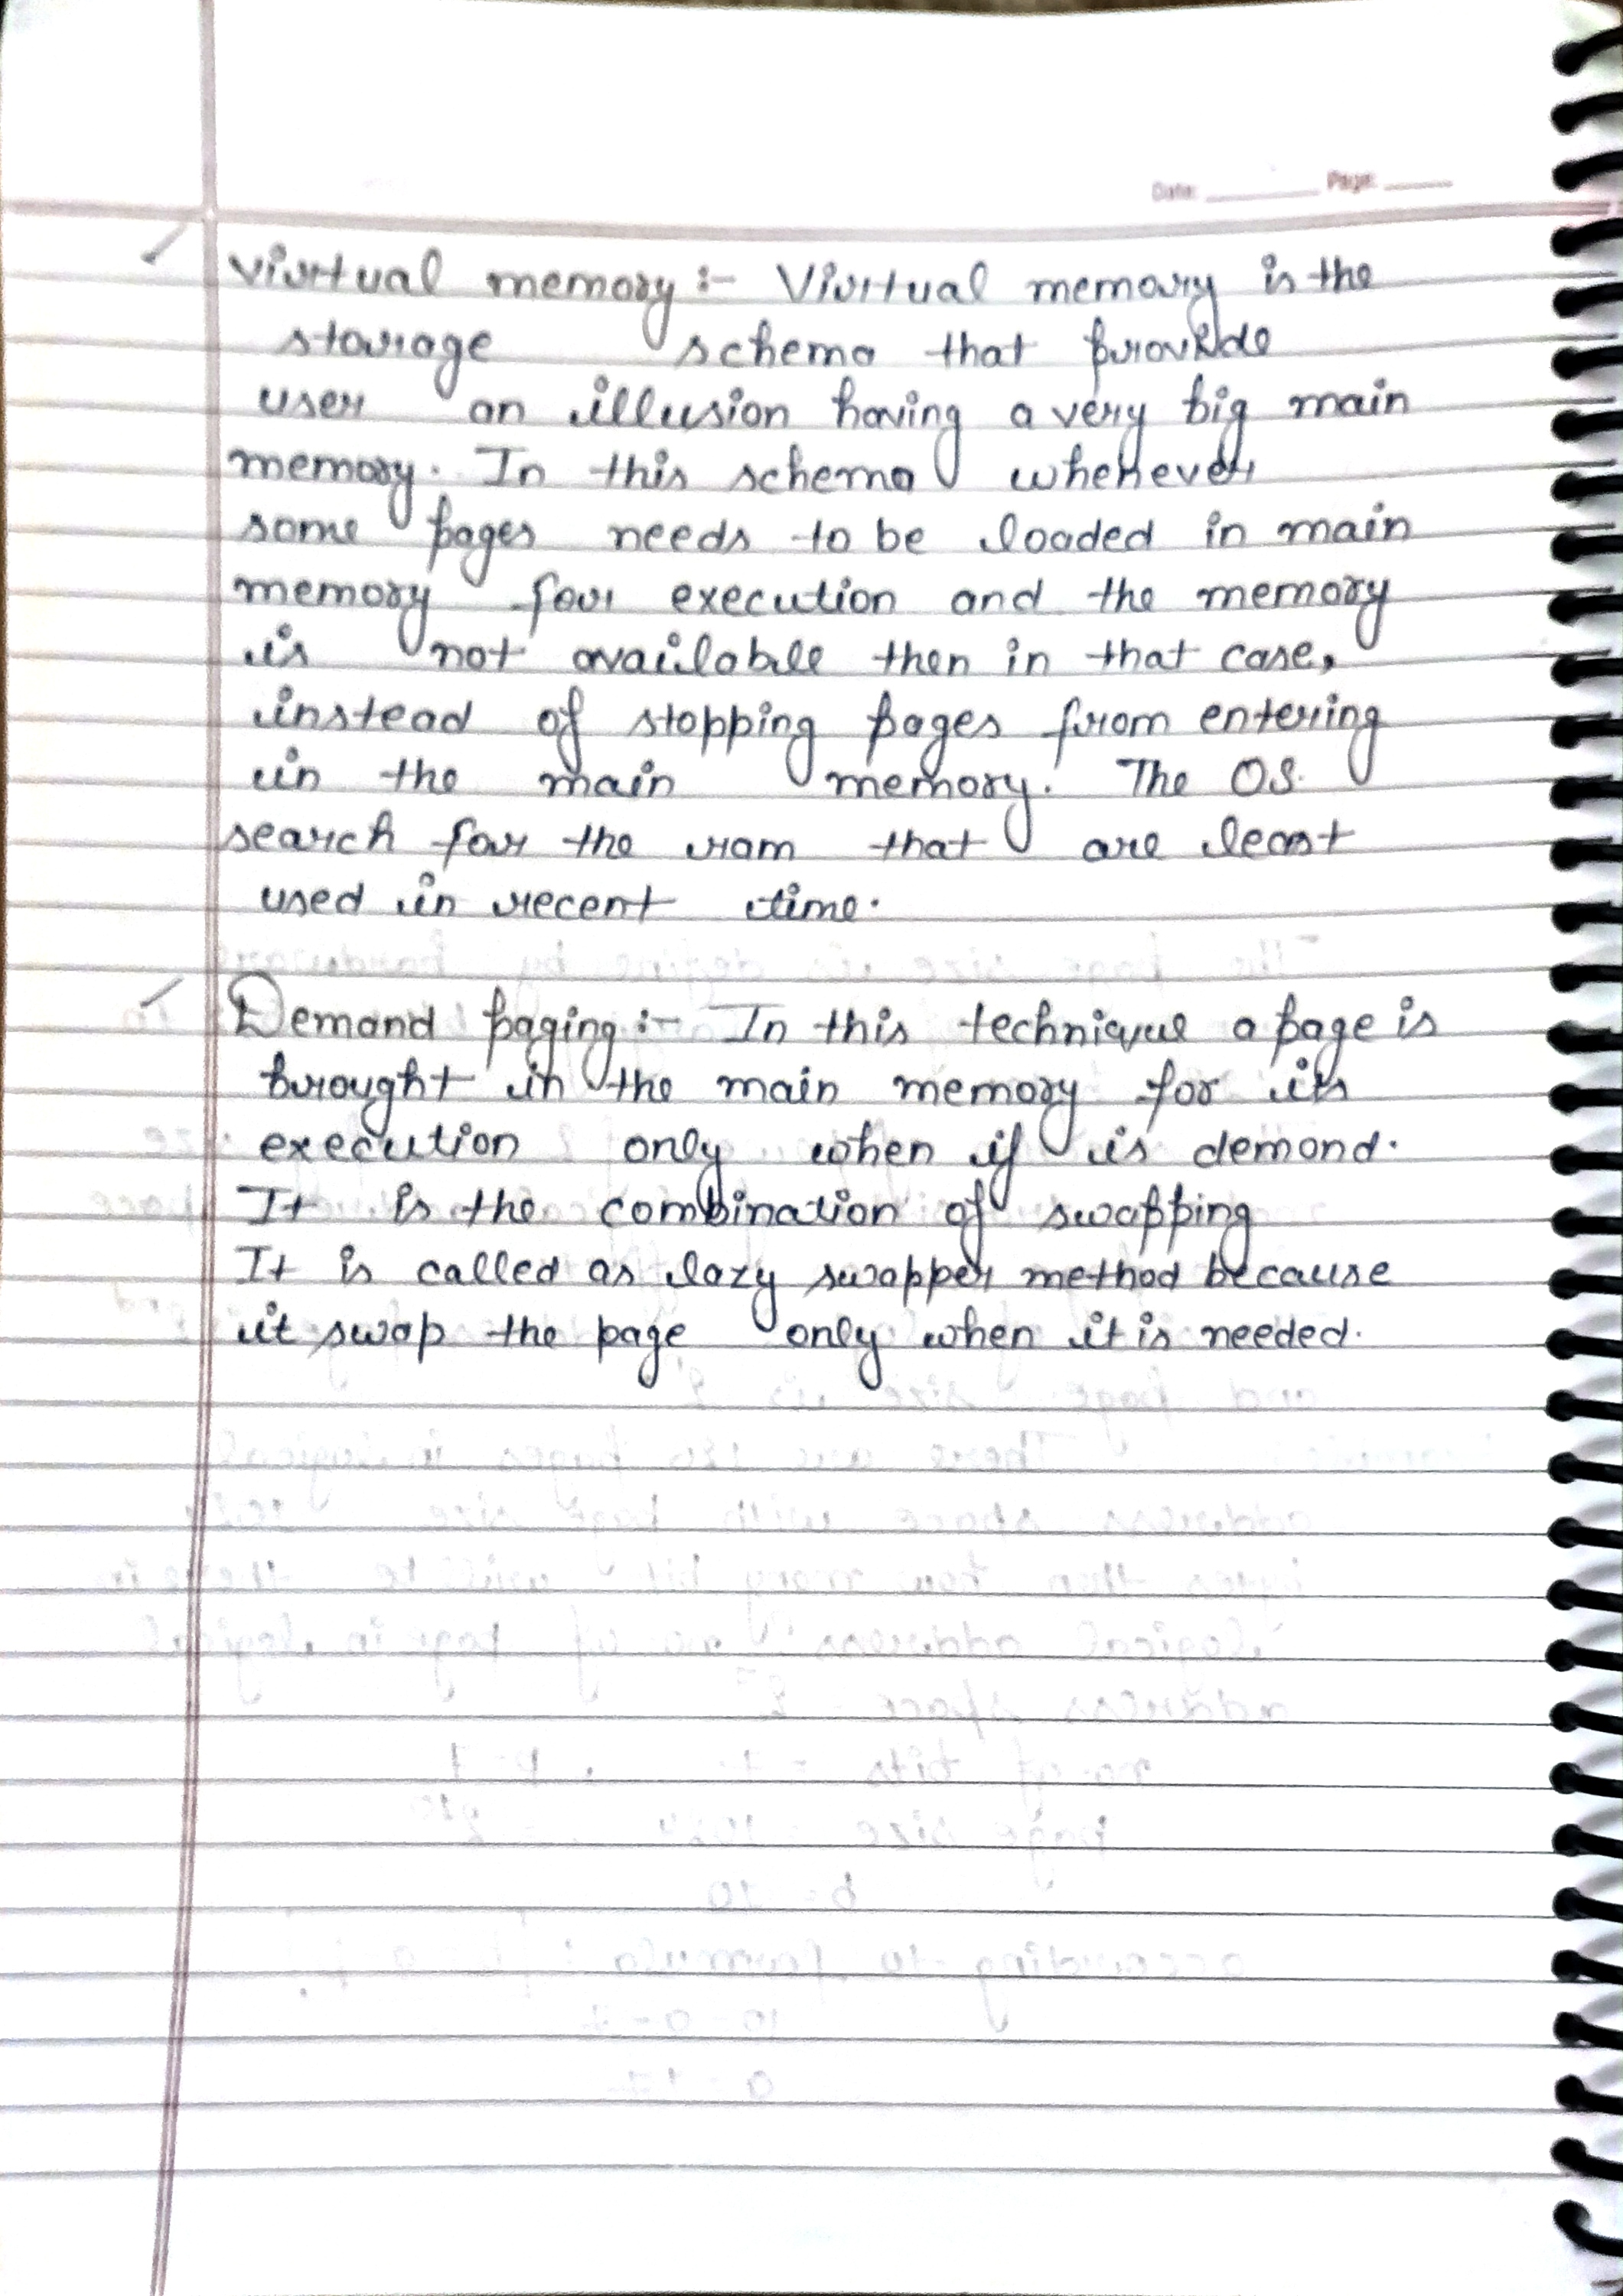 Date: Page:
Virtual memory :- Virtual memory is the
storage schema that provide
user an illusion having a very big main
memory. In this schema whenever
some pages needs to be loaded in main
memory for execution and the memory
is not available then in that case,
instead of stopping pages from entering
in the main memory. The OS.
search for the ram that are least
used in recent time.
Demand paging :- In this technique a page is
brought in the main memory for its
execution only when if is demand.
It is the combination of swapping
It is called as lazy swapper method because
it swap the page only when it is needed.